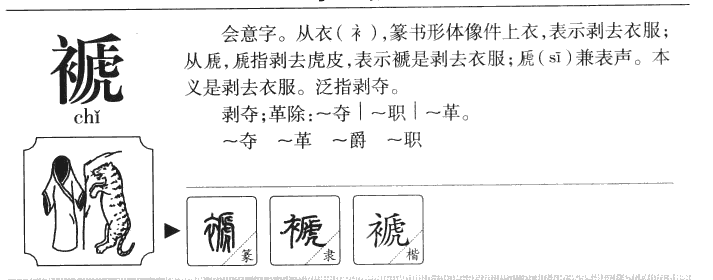 褫
chǐ
会意字。从衣(衤),篆书形体像件上衣,表示剥去衣服;
从虒,虒指剥去虎皮,表示褫是剥去衣服;虒(sī)兼表声。本
义是剥去衣服。泛指剥夺。
剥夺;革除:～夺｜～职｜～革。
～夺 ～革 ～爵 ～职
褫 篆 褫 隶 褫 楷